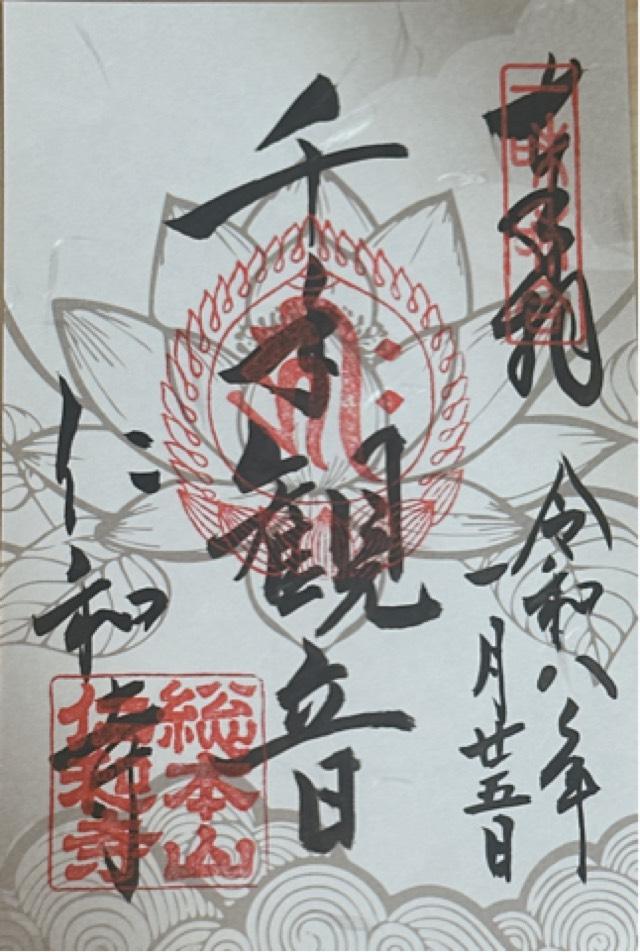 奉拝
令和八年
一月廿五日
千手観音
仁和寺
総本山
仁和寺